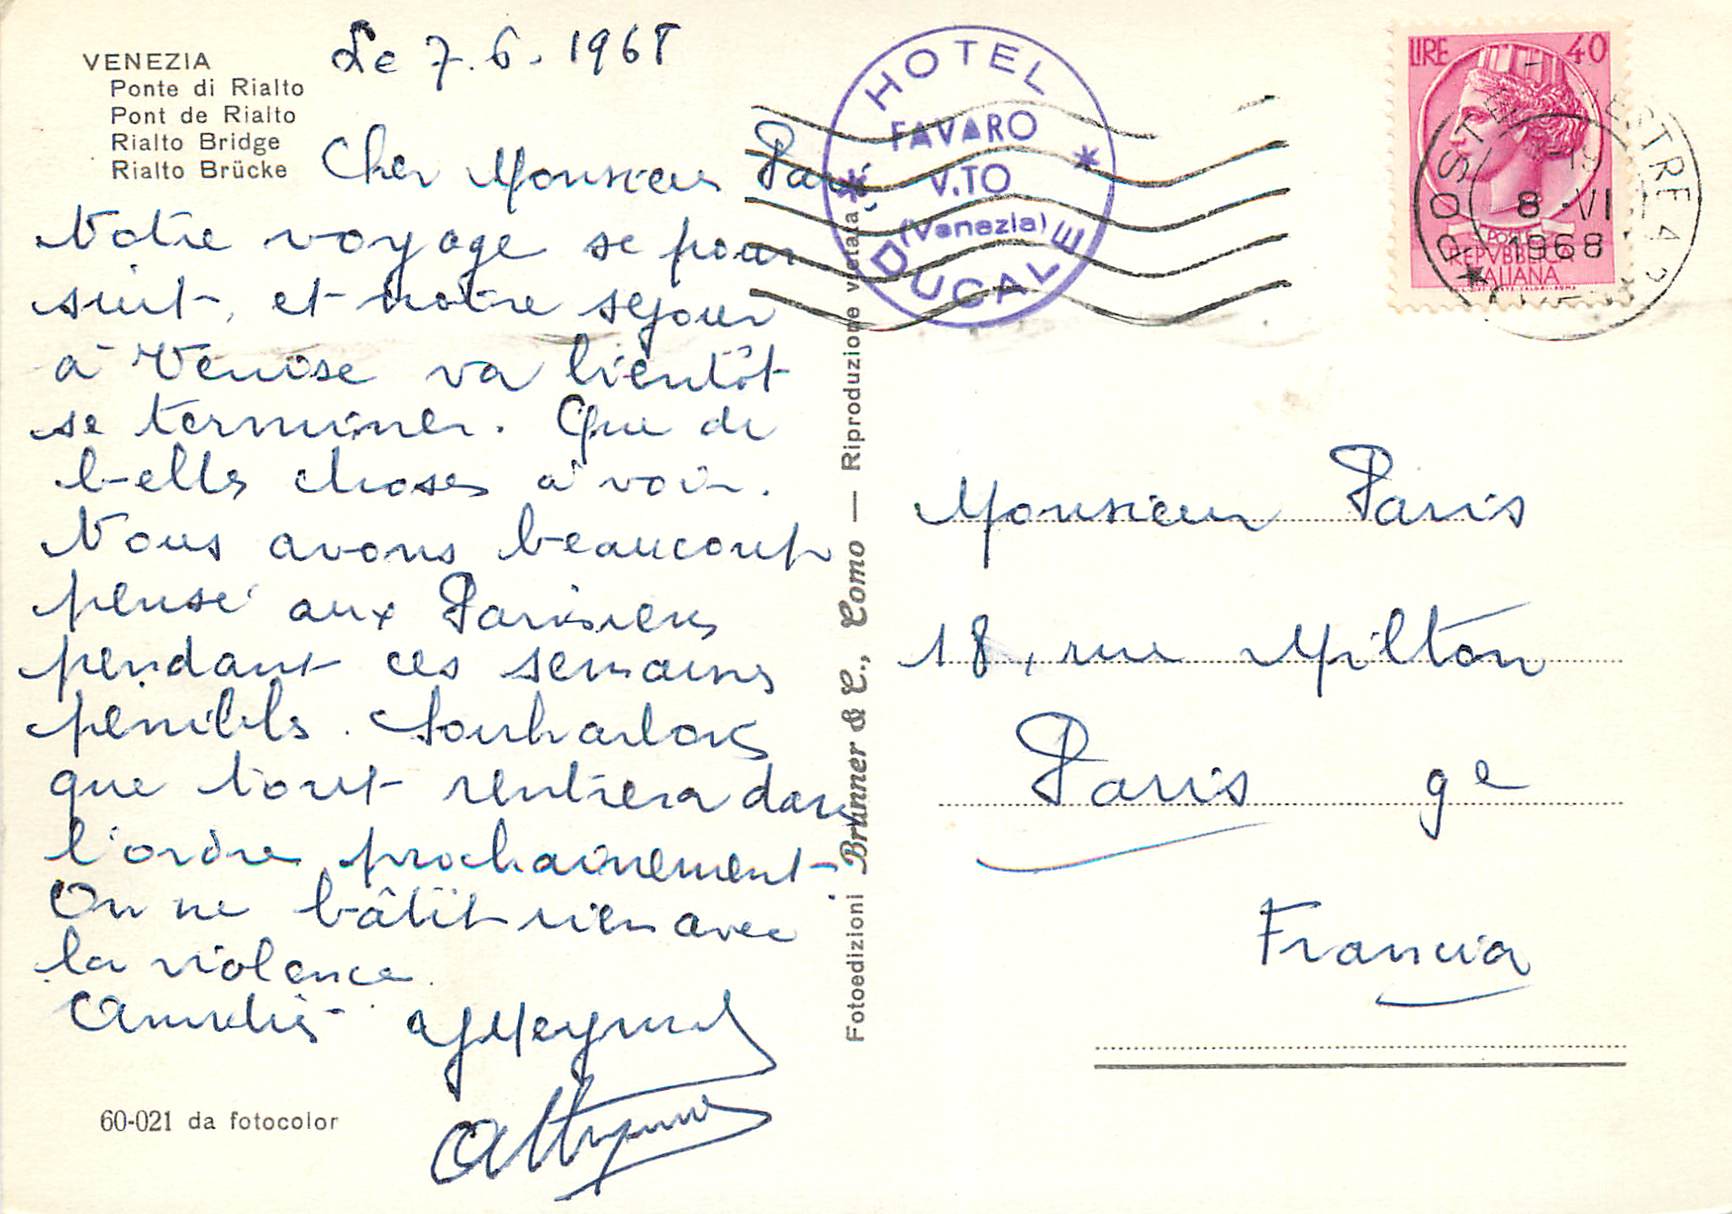 VENEZIA
Ponte di Rialto
Pont de Rialto
Rialto Bridge
Rialto Brücke
Le 7.6.1968
Cher Monsieur Paris
Notre voyage se pour
suit, et notre séjour
à Venise va bientôt
se terminer. Que de
belles choses à voir.
Nous avons beaucoup
pensé aux Parisiens
pendant ces semaines
pénibles. Souhaitons
que tout rentrera dans
l'ordre prochainement
On ne bâtit rien avec
la violence.
Amitiés
60-021 da fotocolor
Fotoedizioni Brunner & C., Como — Riproduzione vietata
HOTEL
FAVARO
V.TO
(Venezia)
DUCALE
LIRE 40
POSTE
REPVBBLICA
ITALIANA
POSTE MESTRE
19
8 VI
1968
Monsieur Paris
18, rue Milton
Paris 9e
Francia